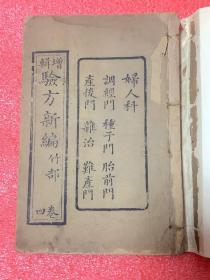 婦人科
調經門 種子門 胎前門
產後門 雜治 難產門
增輯驗方新編 竹部
卷四